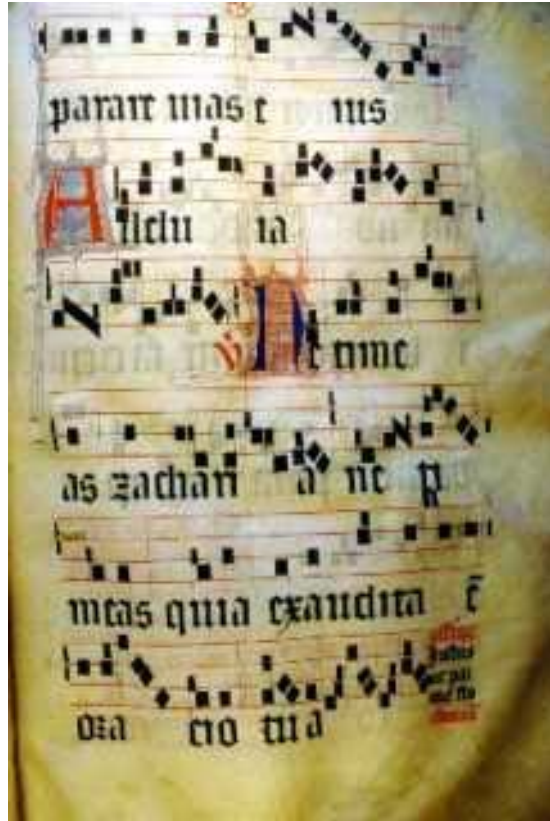 parare uias e ius
Allelu ia
℣ Ne time
as zachari a ne ti
meas quia exaudita ē
ora cio tu a